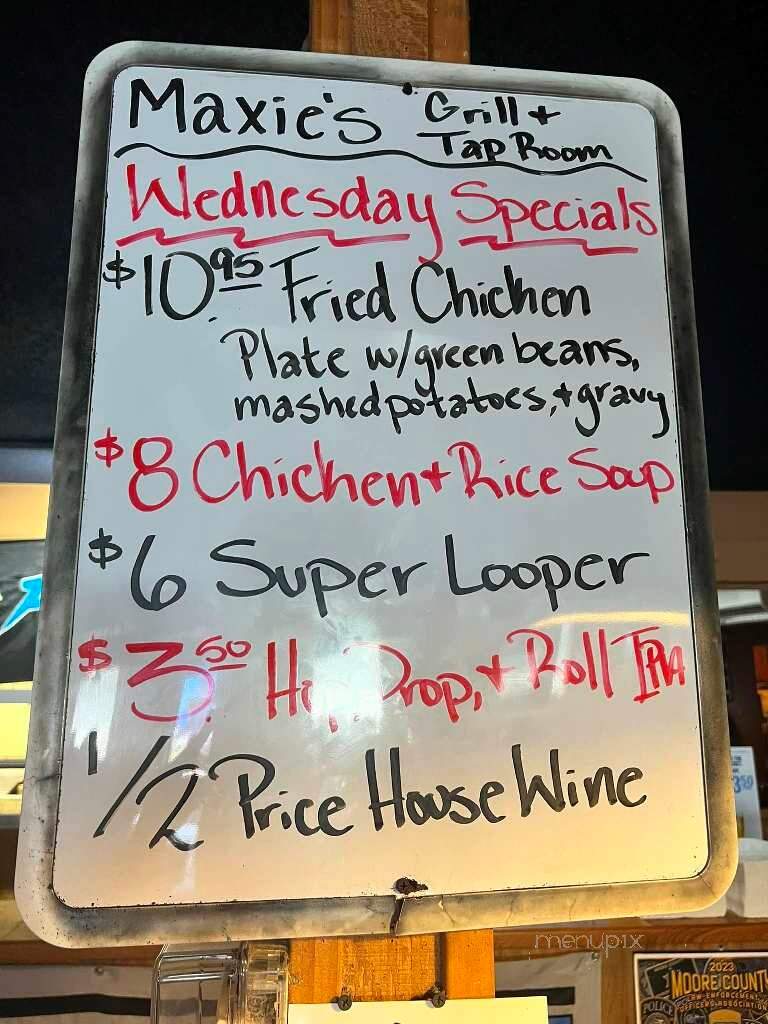 Maxie's Grill +
Tap Room
Wednesday Specials
$10.95 Fried Chicken
Plate w/green beans,
mashed potatoes, + gravy
$8 Chicken + Rice Soup
$6 Super Looper
$3.50 Hip, Drop, + Roll IPA
1/2 Price House Wine
menupix
3.50
2023
MOORE COUNTY
LAW ENFORCEMENT
OFFICERS ASSOCIATION
POLICE